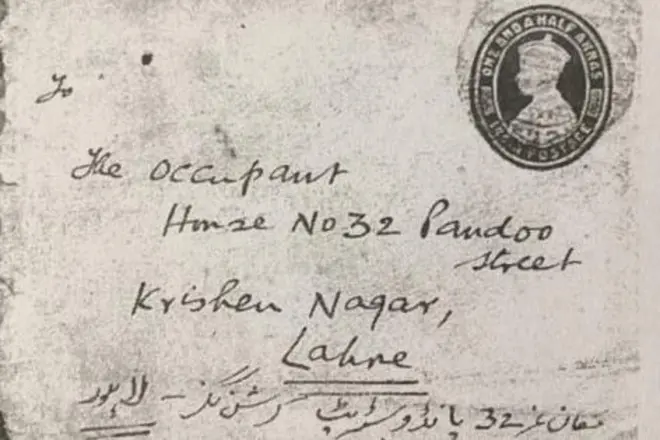 ONE AND A HALF ANNAS
INDIA POSTAGE
To
The Occupant
House No 32 Pandoo
Street
Krishen Nagar,
Lahore
مکان نمبر 32 پانڈو سٹریٹ کرشن نگر - لاہور